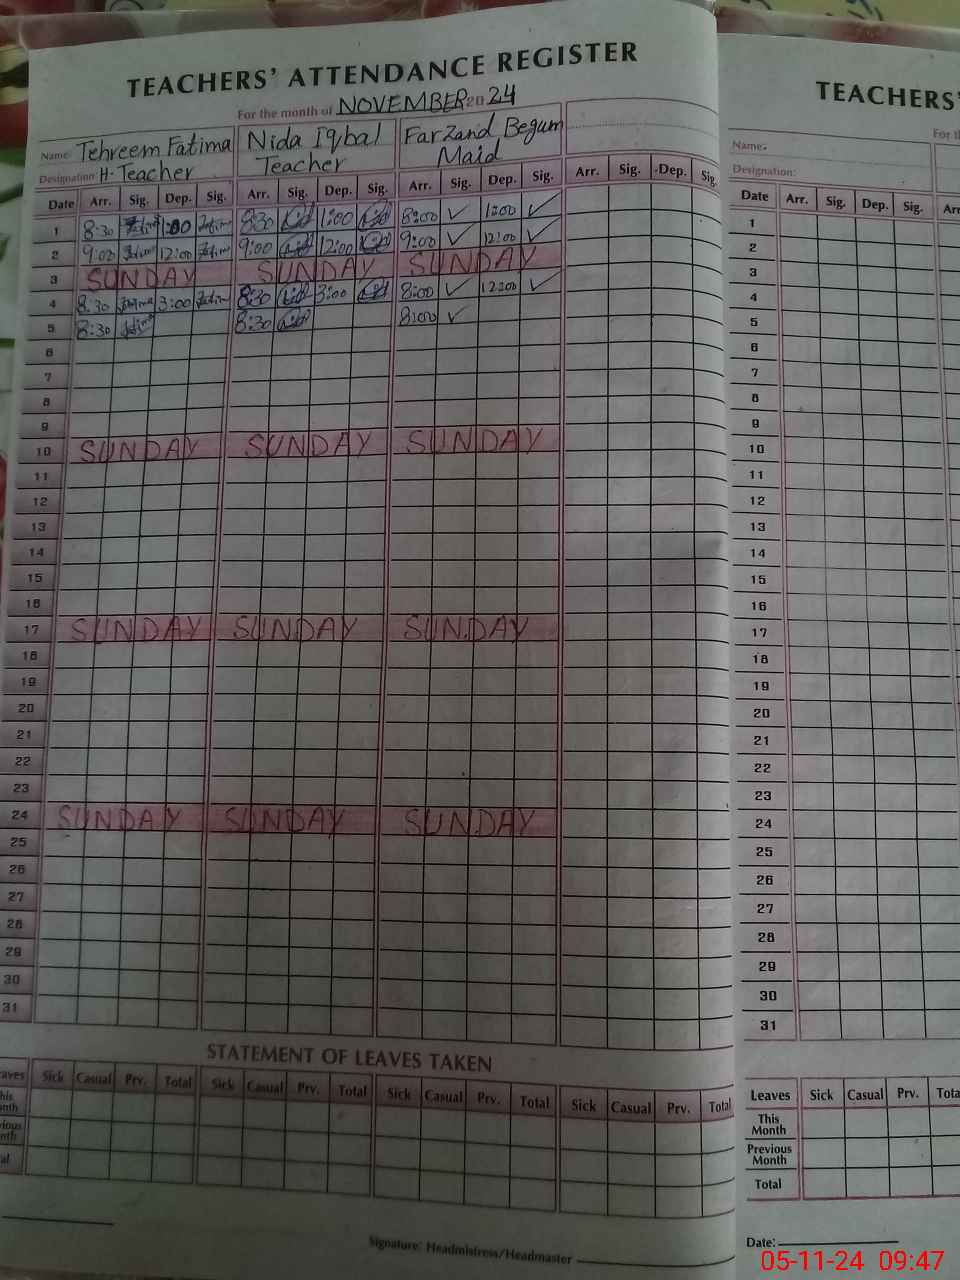 TEACHERS' ATTENDANCE REGISTER
For the month of NOVEMBER 2024
Name: Tehreem Fatima Nida Iqbal Farzand Begum
Designation: H-Teacher Teacher Maid
Date Arr. Sig. Dep. Sig. Arr. Sig. Dep. Sig. Arr. Sig. Dep. Sig. Arr. Sig. Dep. Sig.
1 8:30 Fatima 1:00 Fatima 8:30 1:00 8:00 ✓ 1:00 ✓
2 9:00 Fatima 12:00 Fatima 9:00 12:00 9:00 ✓ 12:00 ✓
3 SUNDAY SUNDAY SUNDAY
4 8:30 Fatima 3:00 Fatima 8:30 3:00 8:00 ✓ 12:00 ✓
5 8:30 Fatima 8:30 8:00 ✓
6
7
8
9
10 SUNDAY SUNDAY SUNDAY
11
12
13
14
15
16
17 SUNDAY SUNDAY SUNDAY
18
19
20
21
22
23
24 SUNDAY SUNDAY SUNDAY
25
26
27
28
29
30
31
STATEMENT OF LEAVES TAKEN
aves Sick Casual Prv. Total Sick Casual Prv. Total Sick Casual Prv. Total Sick Casual Prv. Total
his
onth
vious
nth
al
Signature: Headmistress/Headmaster
TEACHERS'
For th
Name:
Designation:
Date Arr. Sig. Dep. Sig. Arr
1
2
3
4
5
6
7
8
9
10
11
12
13
14
15
16
17
18
19
20
21
22
23
24
25
26
27
28
29
30
31
Leaves Sick Casual Prv. Tota
This
Month
Previous
Month
Total
Date:
05-11-24 09:47